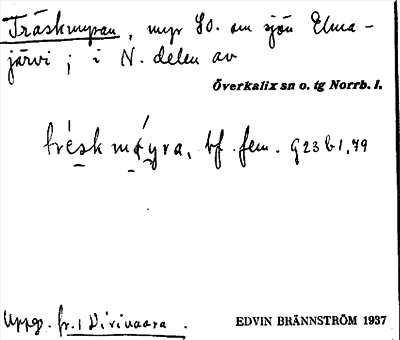 Träskmyran, myr SO. om sjön Elma-
järvi; i N. delen av
Överkalix sn o. tg Norrb. l.
bf. fem. G 23 b 1, 79
Uppg. fr. i Virivaara.
EDVIN BRÄNNSTRÖM 1937